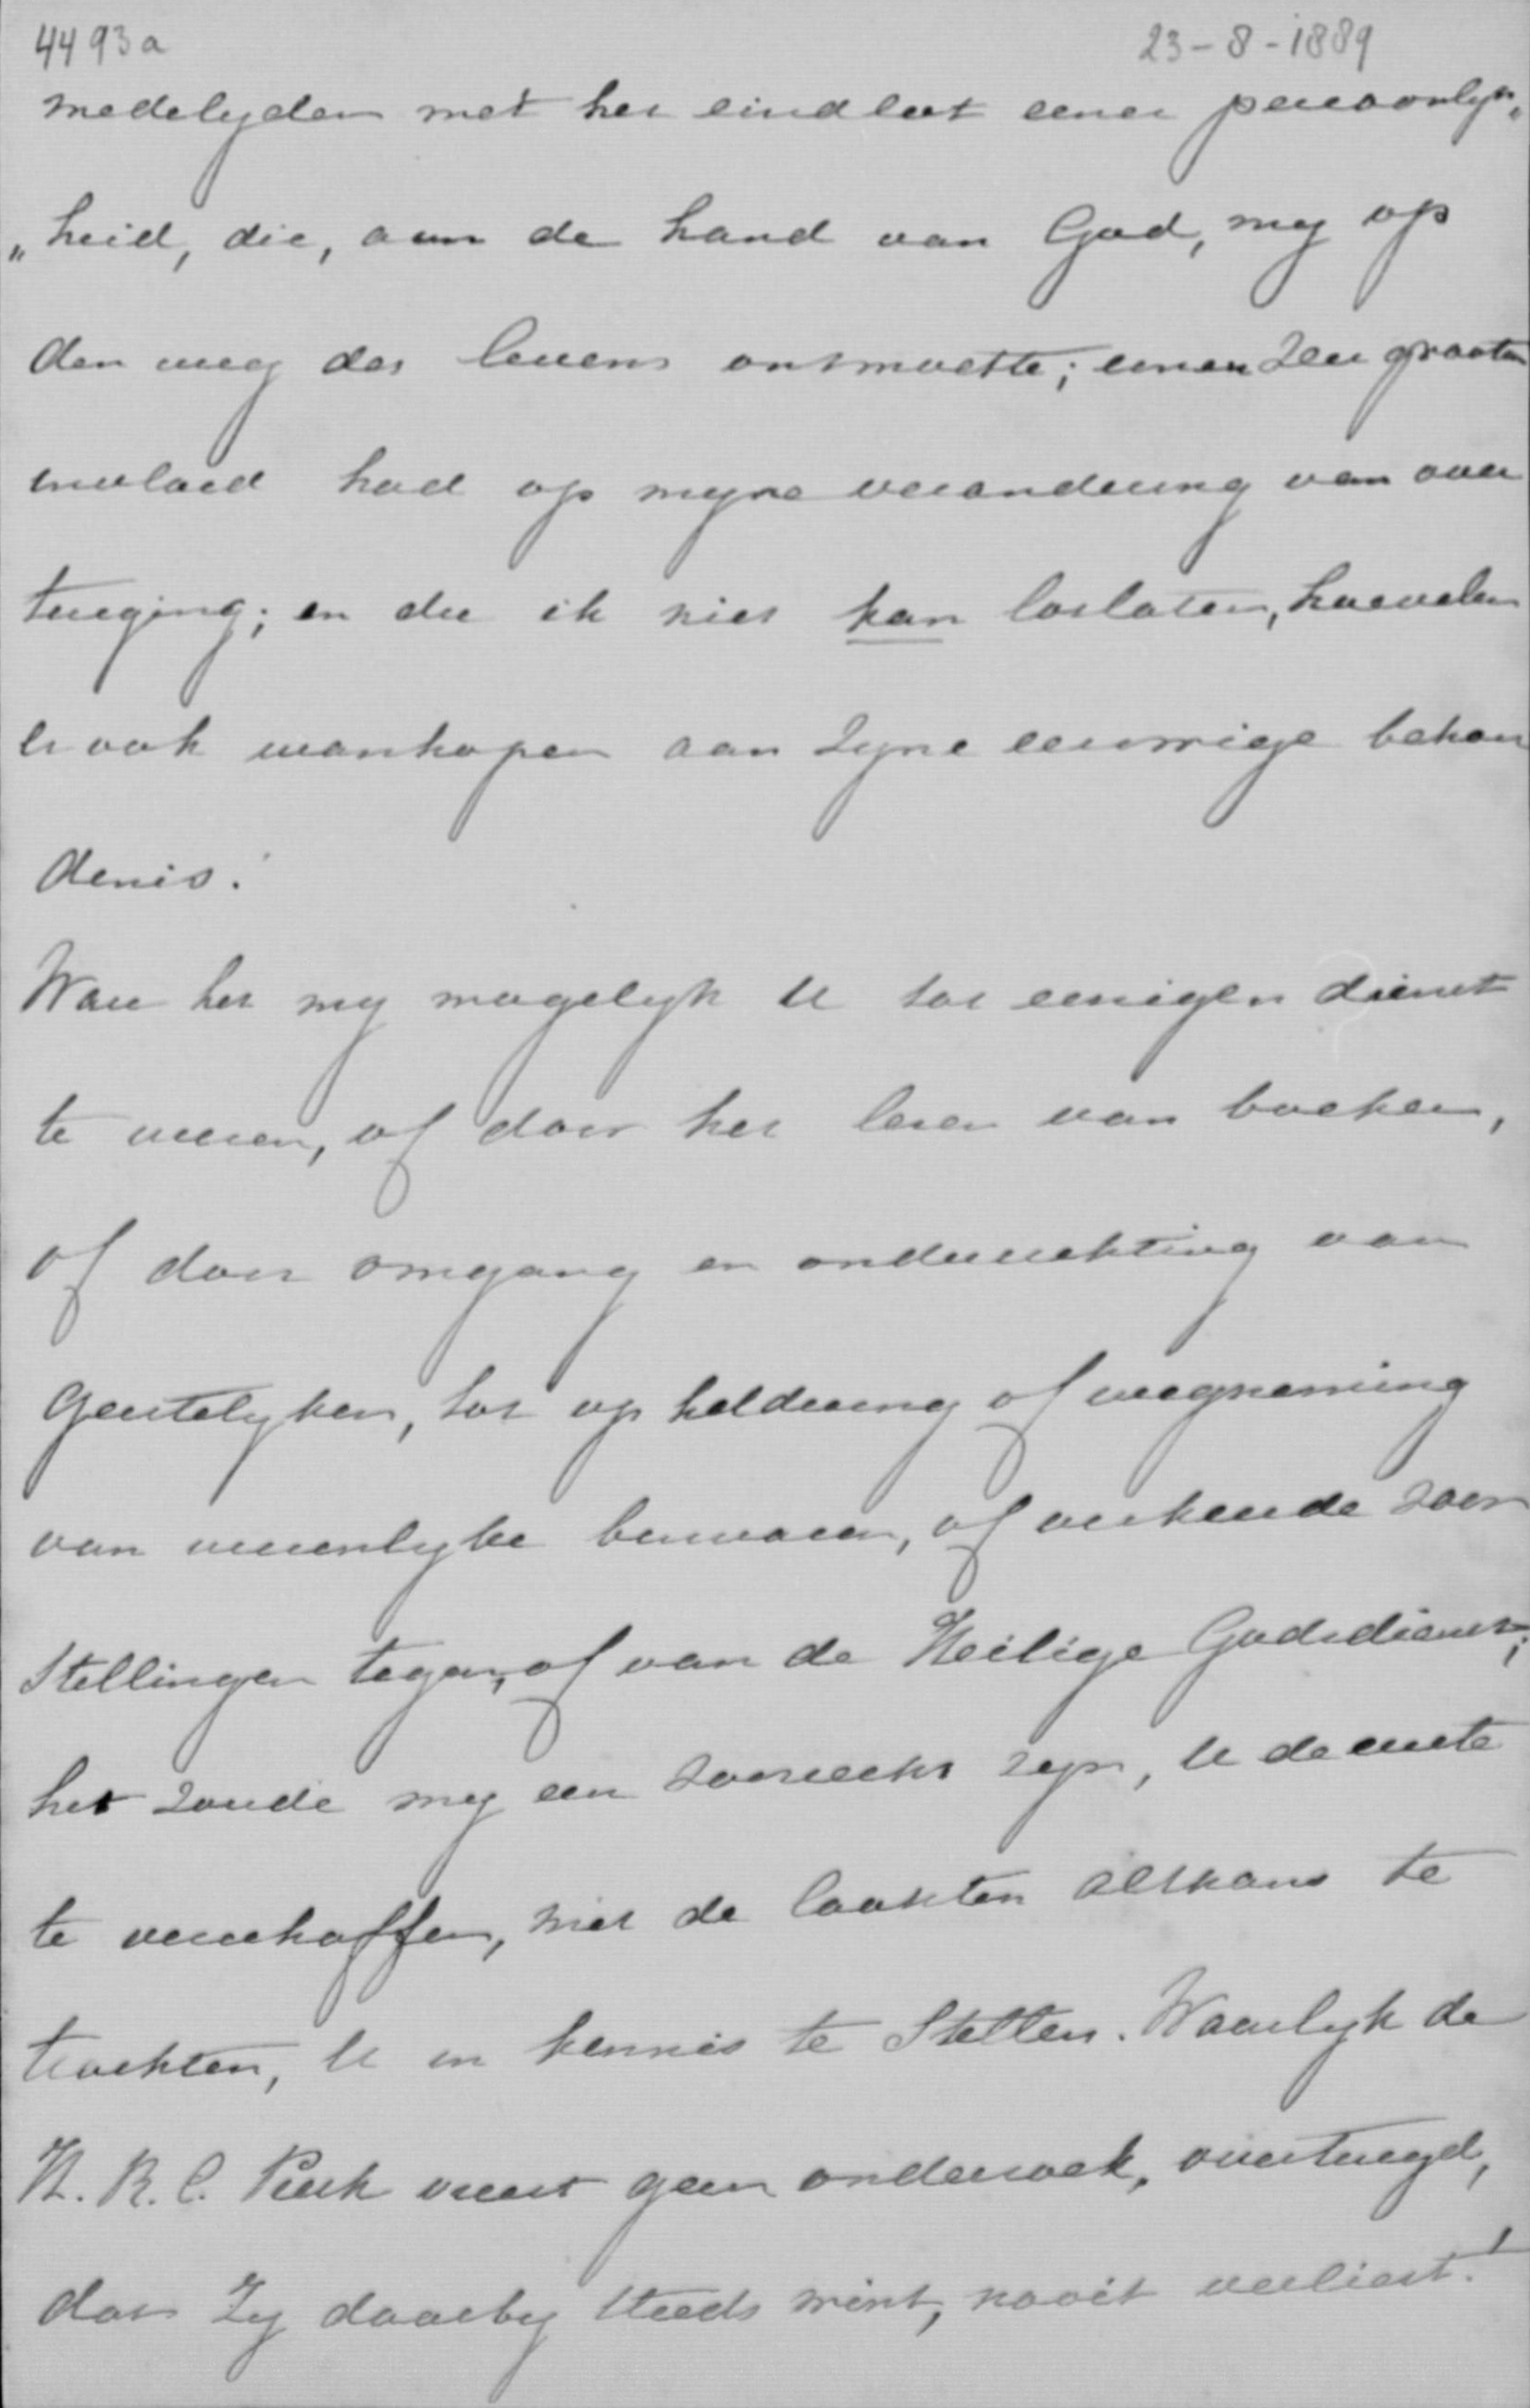 4493a 23-8-1889
medelyden met het eindlot eener persoonlyk„
„heid, die, aan de hand van God, my op
den weg des levens ontmoette; eenen zeer grooten
invloed had op myne verandering van over
tuiging; en die ik niet kan loslaten, hoevelen
er ook wanhopen aan zyne eeuwige behou
denis.
Ware het my mogelyk U tot eenigen dienst
te wezen, of door het lezen van boeken,
of door omgang en onderrichting van
Geestelyken, tot op heldering of wegneming
van wezenlyke bezwaren, of verkeerde voor
stellingen tegen, of van de Heilige Godsdienst;
het zoude my een voorrecht zyn, U de eerste
te verschaffen, met de laatsten althans te
trachten, U in kennis te Stellen. Waarlyk de
H. R. C. Kerk vreest geen onderzoek, overtuigd,
dat Zy daarby steeds wint, nooit verliest!